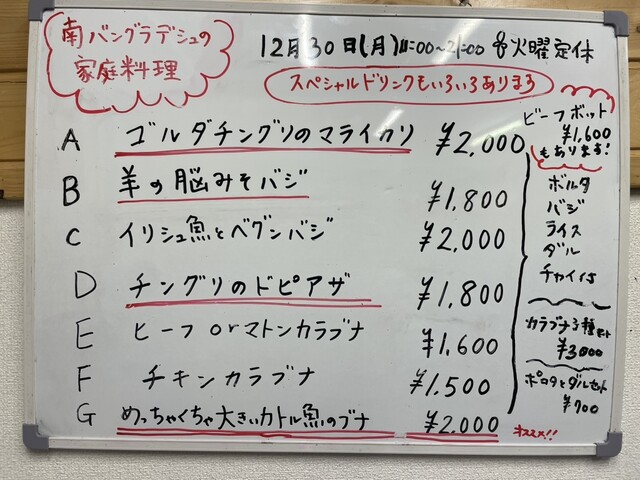 南バングラデシュの
家庭料理
12月30日(月)11:00~21:00 火曜定休
スペシャルドリンクもいろいろあります
A ゴルダチングリのマライカリ ¥2,000
B 羊の脳みそバジ ¥1.800
C イリシュ魚とベグンバジ ¥2,000
D チングリのドピアザ ¥1.800
E ビーフorマトンカラブナ ¥1.600
F チキンカラブナ ¥1.500
G めっちゃくちゃ大きいカトル魚のブナ ¥2.000
オススメ!!
ビーフボット
¥1,600
もあります!
ボルタ
バジ
ライス
ダル
チャイ付
カラブナ3種セット
¥3000
ポロタとダルセット
¥700